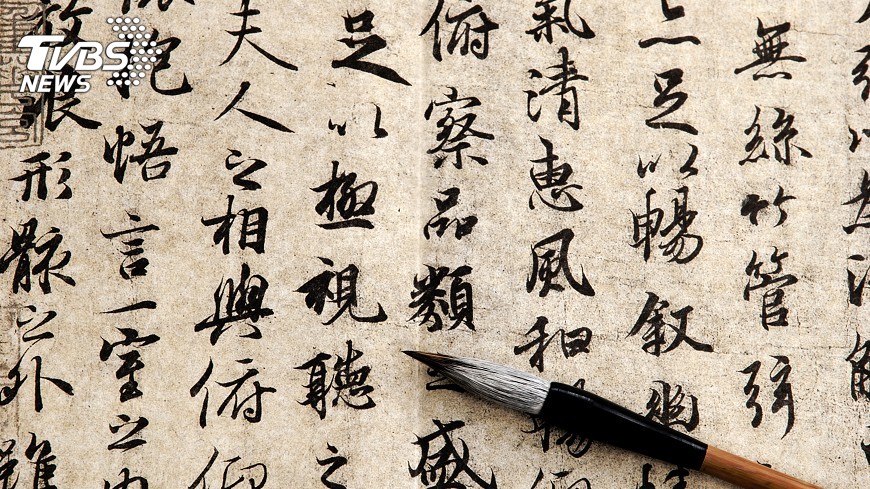 TVBS
NEWS
無絲竹管弦
亦足以暢叙幽情
氣清惠風和暢仰
俯察品類之盛
足以極視聽之
夫人之相與俯仰
抱悟言一室之內
放浪形骸之外雖